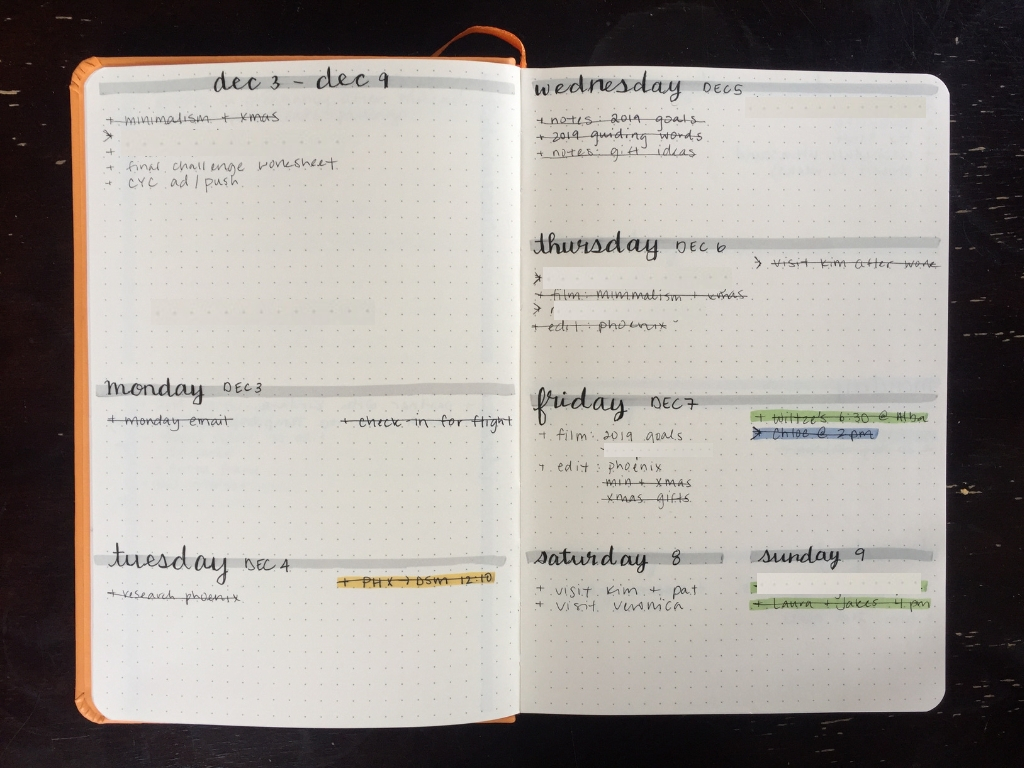 dec 3 - dec 9
+ minimalism + xmas
>
+
+ final challenge worksheet
+ CYC ad / push
monday DEC 3
+ monday email
+ check-in for flight
tuesday DEC 4
+ PHX → DSM 12:10
+ research phoenix
wednesday DEC 5
+ notes: 2019 goals
+ 2019 guiding words
+ notes: gift ideas
thursday DEC 6
> visit kim after work
>
+ film: minimalism + xmas
>
+ edit: phoenix
friday DEC 7
+ film: 2019 goals
+ edit: phoenix
min + xmas
xmas gifts
+ 6:30 @
> Chloe @ 2pm
saturday 8
+ visit kim + pat
+ visit veronica
sunday 9
+ Laura + Jakes 4pm